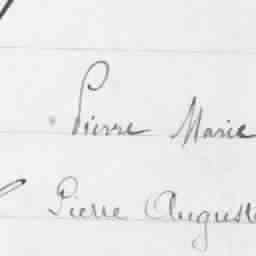 Pierre Marie
Pierre Auguste